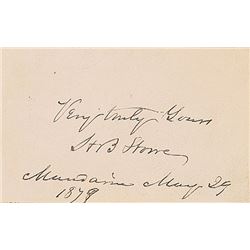 Very truly Yours
H B Stowe
Mandarin May 29
1879